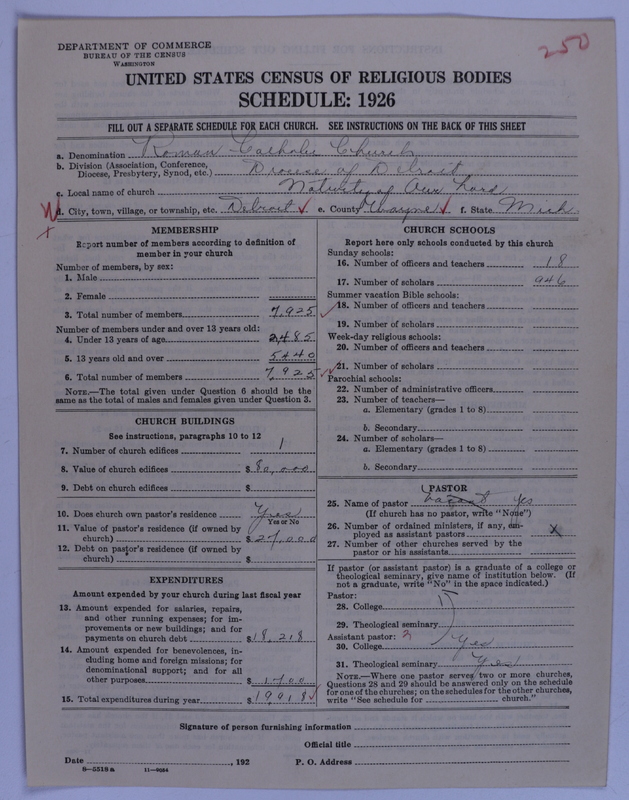 250
DEPARTMENT OF COMMERCE
BUREAU OF THE CENSUS
WASHINGTON
UNITED STATES CENSUS OF RELIGIOUS BODIES
SCHEDULE: 1926
FILL OUT A SEPARATE SCHEDULE FOR EACH CHURCH. SEE INSTRUCTIONS ON THE BACK OF THIS SHEET
a. Denomination Roman Catholic Church
b. Division (Association, Conference, Diocese, Presbytery, Synod, etc.) Diocese of Detroit
c. Local name of church Nativity of Our Lord
d. City, town, village, or township, etc. Detroit e. County Wayne f. State Mich.
MEMBERSHIP
Report number of members according to definition of
member in your church
Number of members, by sex:
1. Male
2. Female
3. Total number of members 7,925
Number of members under and over 13 years old:
4. Under 13 years of age 2,485
5. 13 years old and over 5440
6. Total number of members 7,925
NOTE.—The total given under Question 6 should be
same as the total of males and females given under Question 3.
CHURCH BUILDINGS
See instructions, paragraphs 10 to 12
7. Number of church edifices 1
8. Value of church edifices $80,000
9. Debt on church edifices $
10. Does church own pastor's residence Yes
Yes or No
11. Value of pastor's residence (if owned by
church) $27,000
12. Debt on pastor's residence (if owned by
church) $
EXPENDITURES
Amount expended by your church during last fiscal year
13. Amount expended for salaries, repairs,
and other running expenses; for im-
provements or new buildings; and for
payments on church debt $18,218
14. Amount expended for benevolences, in-
cluding home and foreign missions; for
denominational support; and for all
other purposes $1,700
15. Total expenditures during year $19,918
CHURCH SCHOOLS
Report here only schools conducted by this church
Sunday schools:
16. Number of officers and teachers 18
17. Number of scholars 946
Summer vacation Bible schools:
18. Number of officers and teachers
19. Number of scholars
Week-day religious schools:
20. Number of officers and teachers
21. Number of scholars
Parochial schools:
22. Number of administrative officers
23. Number of teachers—
a. Elementary (grades 1 to 8)
b. Secondary
24. Number of scholars—
a. Elementary (grades 1 to 8)
b. Secondary
PASTOR
25. Name of pastor yes
(If church has no pastor, write "None")
26. Number of ordained ministers, if any, em-
ployed as assistant pastors x
27. Number of other churches served by the
pastor or his assistants
If pastor (or assistant pastor) is a graduate of a college or
theological seminary, give name of institution below. (If
not a graduate, write "No" in the space indicated.)
Pastor:
28. College
29. Theological seminary
Assistant pastor:
30. College Yes
31. Theological seminary Yes
NOTE.—Where one pastor serves two or more churches,
Questions 28 and 29 should be answered only on the schedule
for one of the churches; on the schedules for the other churches,
write "See schedule for church."
Signature of person furnishing information
Official title
Date , 192 P. O. Address
8—5518a 11—9034